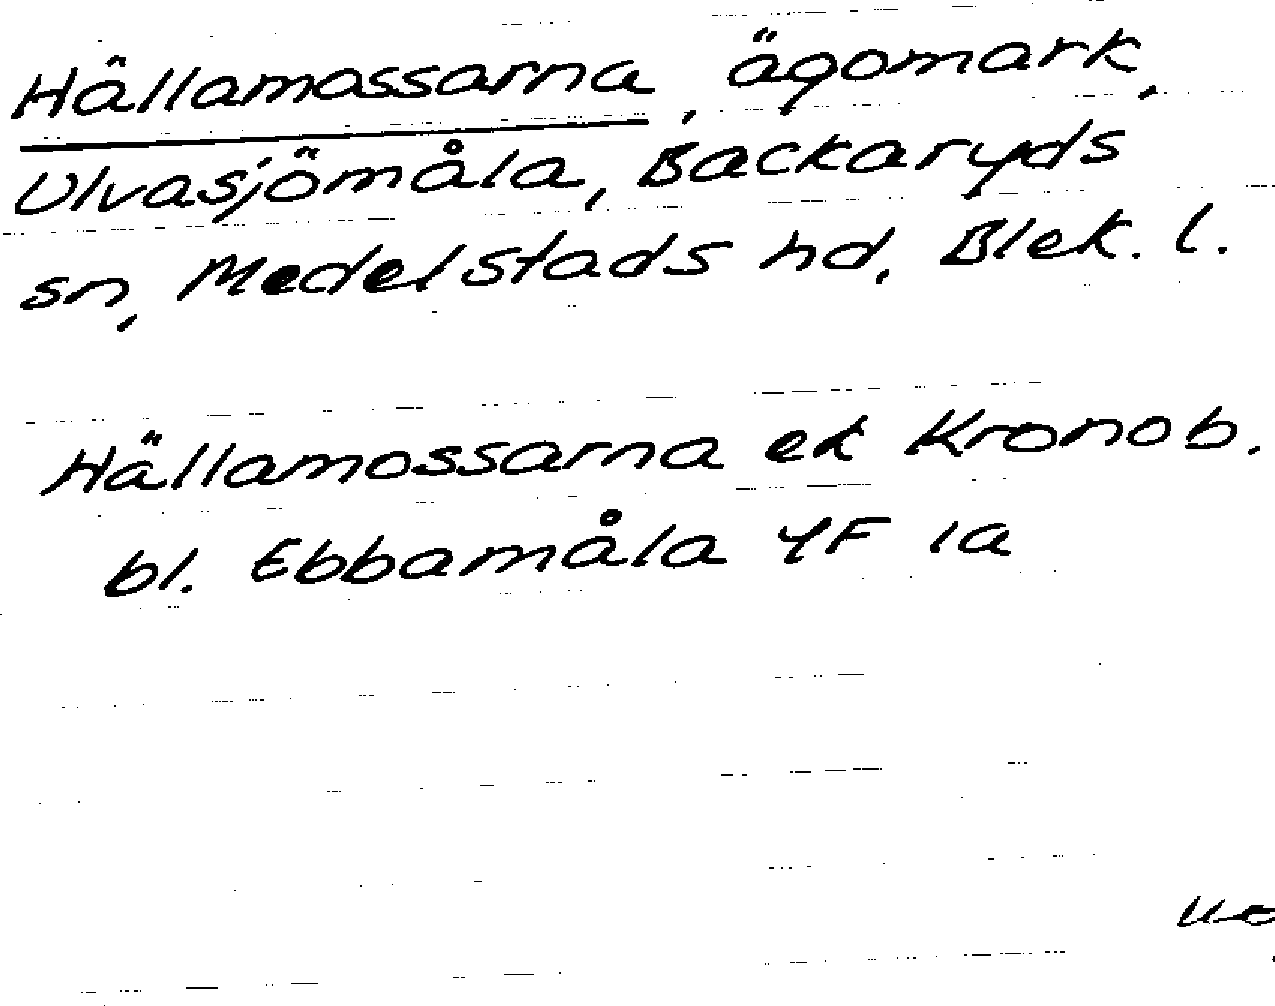 Hällamossarna, ägomark,
Ulvasjömåla, Backaryds
sn, Medelstads hd, Blek. l.
Hällamossarna ek Kronob.
bl. Ebbamåla 4F 1a